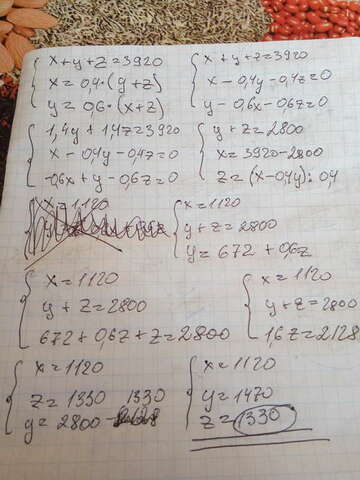 x+y+z=3920
x=0,4·(y+z)
y=0,6·(x+z)
x+y+z=3920
x-0,4y-0,4z=0
y-0,6x-0,6z=0
1,4y+1,4z=3920
x-0,4y-0,4z=0
-0,6x+y-0,6z=0
y+z=2800
x=3920-2800
z=(x-0,4y):0,4
x=1120
x=1120
y+z=2800
y=672+0,6z
x=1120
y+z=2800
672+0,6z+z=2800
x=1120
y+z=2800
1,6z=2128
x=1120
z=1330 1330
y=2800-
x=1120
y=1470
z=1330